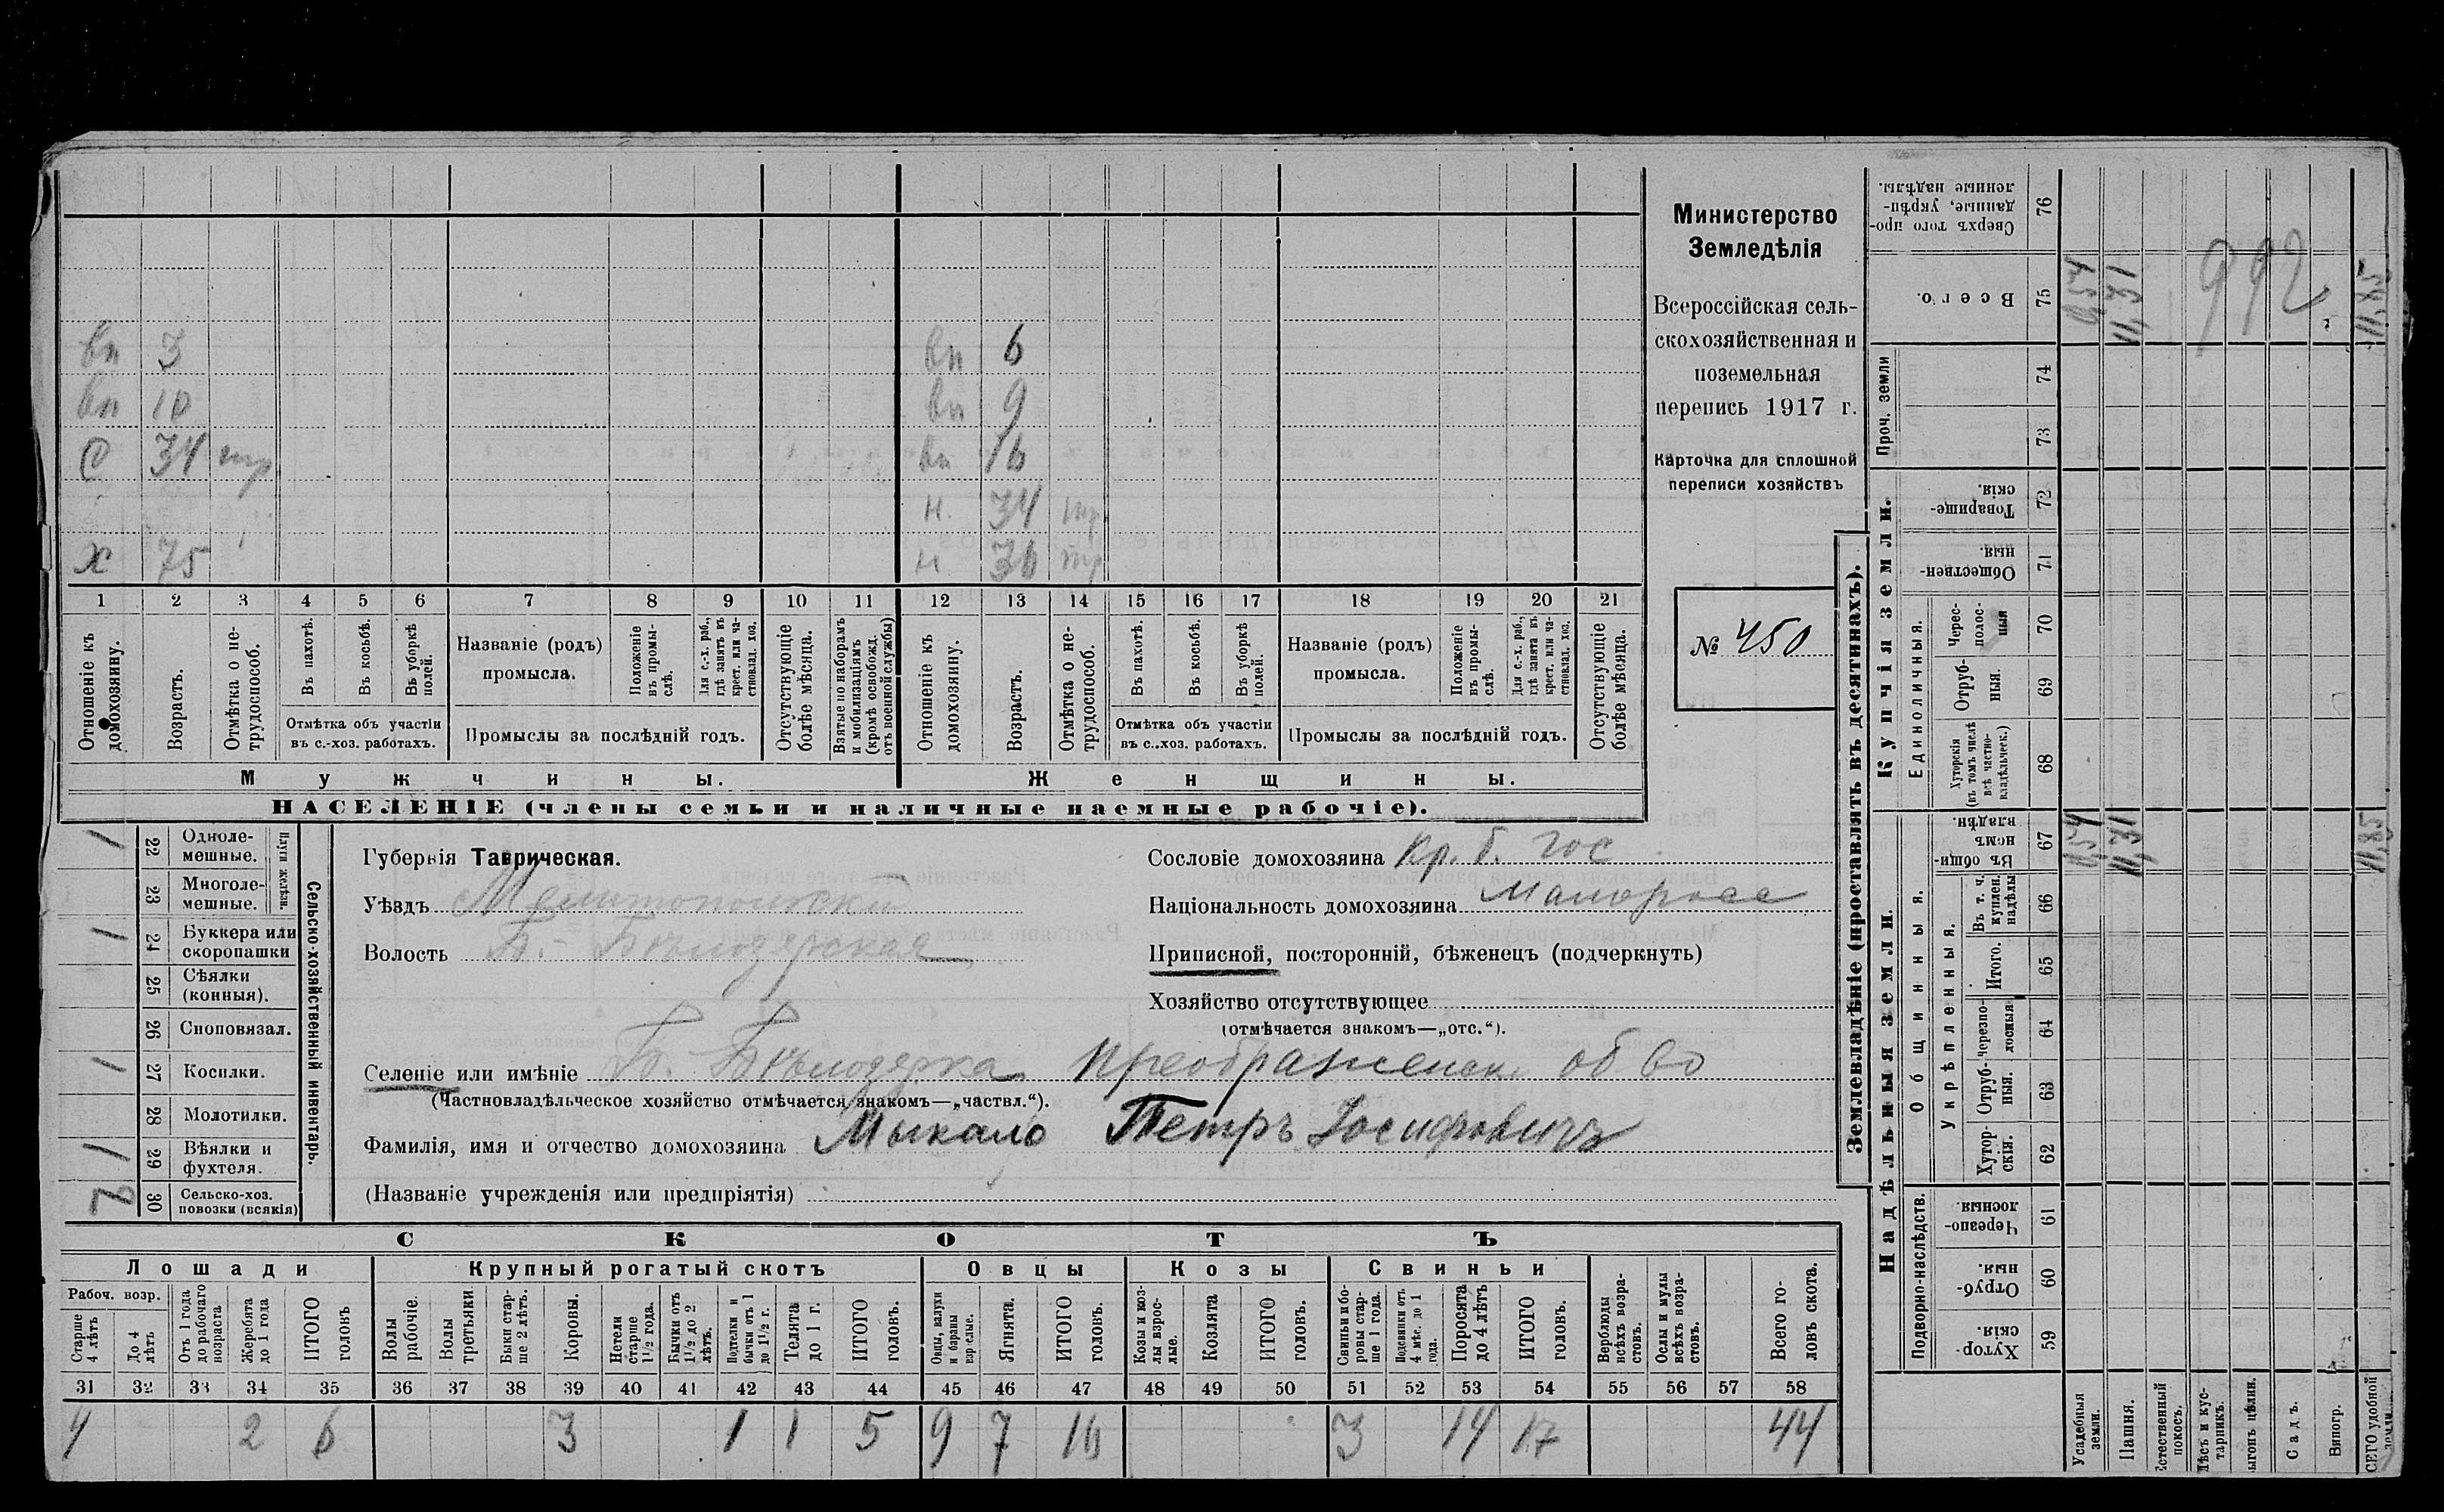 вн 3 вн 6
вн 10 вн 9
С 34 тр вн 16
н. 34 тр.
х 75 н 36 тр
1 2 3 4 5 6 7 8 9 10 11 12 13 14 15 16 17 18 19 20 21
Отношеніе къ домохозяину.
Возрастъ.
Отмѣтка о не-трудоспособ.
Въ пахотѣ.
Въ косьбѣ.
Въ уборкѣ полей.
Отмѣтка объ участіи
въ с.-хоз. работахъ.
Названіе (родъ)
промысла.
Положеніе въ промы-слѣ.
Для с.-х. раб., гдѣ занятъ въ крест. или ча-стновлад. хоз.
Промыслы за послѣдній годъ.
Отсутствующіе болѣе мѣсяца.
Взятые по наборамъ и мобилизаціямъ (кромѣ освобожд. отъ военной службы)
Отношеніе къ домохозяину.
Возрастъ.
Отмѣтка о не-трудоспособ.
Въ пахотѣ.
Въ косьбѣ.
Въ уборкѣ полей.
Отмѣтка объ участіи
въ с.-хоз. работахъ.
Названіе (родъ)
промысла.
Положеніе въ промы-слѣ.
Для с.-х. раб., гдѣ занята въ крест. или ча-стновлад. хоз.
Промыслы за послѣдній годъ.
Отсутствующіе болѣе мѣсяца.
Мужчины. Женщины.
НАСЕЛЕНІЕ (члены семьи и наличные наемные рабочіе).
Министерство
Земледѣлія
Всероссійская сель-
скохозяйственная и
поземельная
перепись 1917 г.
Карточка для сплошной
переписи хозяйствъ
№ 450
Сельско-хозяйственный инвентарь.
Плуги желѣзн.
1 22 Одноле-мешные.
23 Многоле-мешные.
1 24 Буккера или скоропашки
25 Сѣялки (конныя).
26 Сноповязал.
1 27 Косилки.
28 Молотилки.
1 29 Вѣялки и фухтеля.
2 30 Сельско-хоз. повозки (всякія)
Губернія Таврическая.
Уѣздъ Мелитопольскій
Волость Б.-Бѣлозерская
Сословіе домохозяина кр. б. гос
Національность домохозяина малоросс
Приписной, посторонній, бѣженецъ (подчеркнуть)
Хозяйство отсутствующее
(отмѣчается знакомъ—„отс.“).
Селеніе или имѣніе Б.-Бѣлозерка Преображенск. об во
(Частновладѣльческое хозяйство отмѣчается знакомъ—„частвл.“).
Фамилія, имя и отчество домохозяина Мыкало Петръ Іосифовичъ
(Названіе учрежденія или предпріятія)
СКОТЪ
Лошади Крупный рогатый скотъ Овцы Козы Свиньи
Рабоч. возр.
Старше 4 лѣтъ
До 4 лѣтъ
Отъ 1 года до рабочаго возраста
Жеребята до 1 года
ИТОГО головъ
Волы рабочіе.
Волы третьяки.
Быки стар-ше 2 лѣтъ.
Коровы.
Нетели старше 1½ года.
Бычки отъ 1½ до 2 лѣтъ.
Подтелки и бычки отъ 1 до 1½ г.
Телята до 1 г.
ИТОГО головъ.
Овцы, валухи и бараны взрослые.
Ягнята.
ИТОГО головъ.
Козы и коз-лы взрос-лые.
Козлята
ИТОГО головъ.
Свиньи и бо-ровы стар-ше 1 года.
Подсвинки отъ 4 мѣс. до 1 года.
Поросята до 4 лѣтъ
ИТОГО головъ.
Верблюды всѣхъ возра-стовъ.
Ослы и мулы всѣхъ возра-стовъ.
Всего го-ловъ скота.
31 32 33 34 35 36 37 38 39 40 41 42 43 44 45 46 47 48 49 50 51 52 53 54 55 56 57 58
4 2 6 3 1 1 5 9 7 16 3 14 17 44
Землевладѣніе (проставлять въ десятинахъ).
Купчія земли.
Сверхъ того про-данные, укрѣп-ленные надѣлы. 76
Всего. 75 0,54 11,31 11,85
992
Проч. земли 74
73
Товарище-скія. 72
Обществен-ныя. 71
Единоличныя.
Черес-полос-ныя 70
Отруб-ныя. 69
Хуторскія (въ томъ числѣ всѣ частно-владѣльческ.) 68
Надѣльныя земли.
Общинныя.
Въ общин-номъ владѣн. 67 0,54 11,31 11,85
Укрѣпленныя.
Въ т. ч. куплен. надѣлы 66
Итого. 65
Черезпо-лосныя 64
Отруб-ныя. 63
Хутор-скія. 62
Подворно-наслѣдств.
Черезпо-лосныя 61
Отруб-ныя. 60
Хутор-скія 59
Усадебныя земли.
Пашня.
Естественный покосъ.
Лѣсъ и кус-тарникъ.
Садъ.
Виногр.